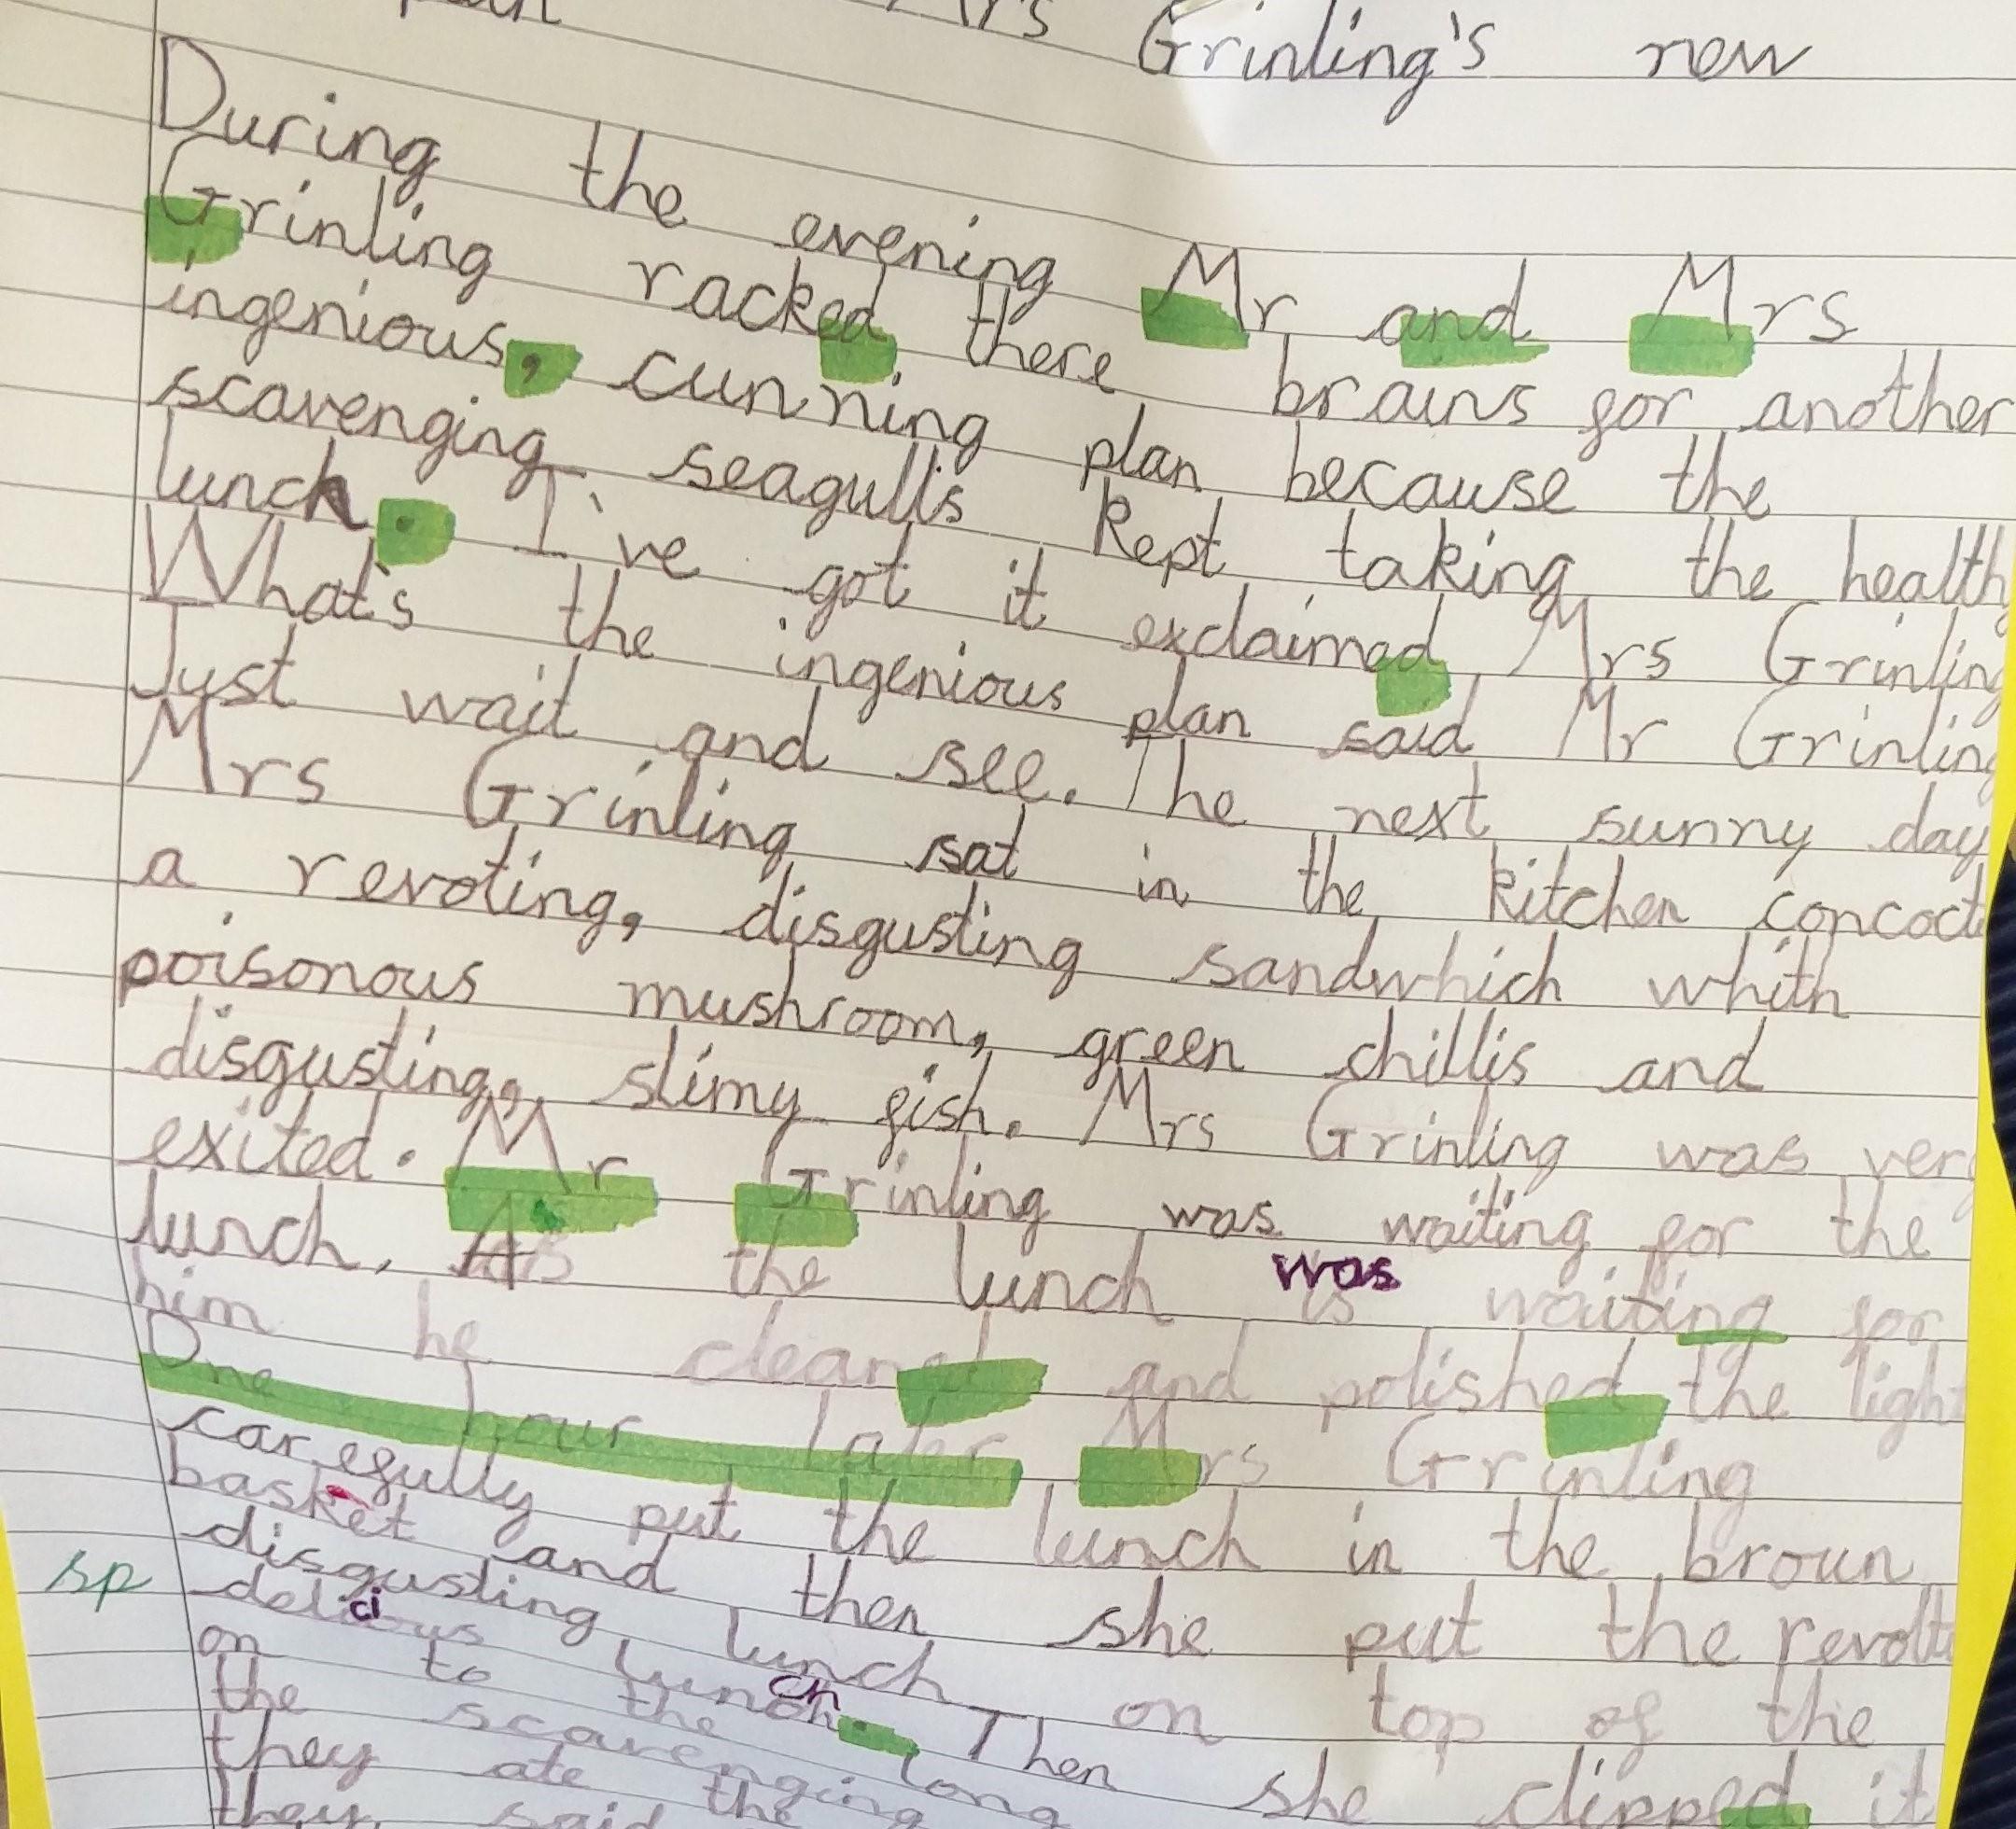 Grinling's new
During the evening Mr and Mrs
Grinling racked there brains for another
ingenious, cunning plan because the
scavenging seagulls kept taking the health
lunch. I've got it exclaimed Mrs Grinling
What's the ingenious plan said Mr Grinling
Just wait and see. The next sunny day
Mrs Grinling sat in the kitchen concoct
a revoting, disgusting sandwhich whith
poisonous mushroom, green chillis and
disgusting, slimy fish. Mrs Grinling was very
exited. Mr Grinling was waiting for the
lunch. As the lunch was waiting for
him he cleaned and polished the light
One hour later Mrs Grinling
carefully put the lunch in the broun
basket and then she put the revolt
disgusting lunch on top of the
sp delicious lunch. Then she clipped it
on to the long
the scavenging
they ate the
they said